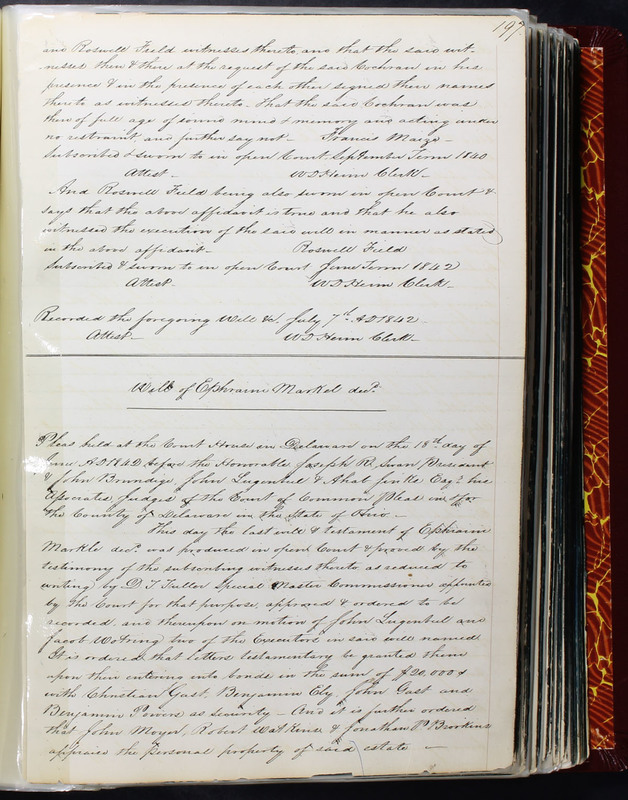 197
and Roswell Field witnesses thereto, and that the said wit-
nesses then & there at the request of the said Cochran in his
presence & in the presence of each other signed their names
thereto as witnesses thereto. That the said Cochran was
then of full age of sound mind & memory and acting under
no restraint, and further say not - Francis Marzo -
Subscribed & sworn to in open Court September Term 1840
Attest - W D Heim Clerk -
And Roswell Field being also sworn in open Court &
says that the above affidavit is true and that he also
witnessed the execution of the said will in manner as stated
in the above affidavit - Roswell Field
Subscribed & sworn to in open Court June Term 1842
Attest. W D Heim Clerk -
Recorded the foregoing Will &c. July 7th AD 1842
Attest - W D Heim Clerk -
Will of Ephraim Markel decd.
Pleas held at the Court House in Delaware on the 18th day of
June AD 1842 before the Honorable Joseph R. Swan President
& John Brundige, John Lugenbeel & Esqs. his
Associates Judges of the Court of Common Pleas in & for
the County of Delaware in the State of Ohio -
This day the last will & testament of Ephraim
Markle decd. was produced in open Court & proved by the
testimony of the subscribing witnesses thereto as reduced to
writing by D T Fuller Special Master Commissioner appointed
by the Court for that purpose, approved & ordered to be
recorded, and thereupon on motion of John Lugenbeel and
Jacob Wotring two of the Executors in said will named
It is ordered that letters testamentary be granted them
upon their entering into bonds in the sum of $20,000 &
with Christian Gast, Benjamin Ely, John Gast and
Benjamin Powers as security - And it is further ordered
that John Moyer, Robert Watkins & Jonathan P Brookins
appraise the personal property of said estate -